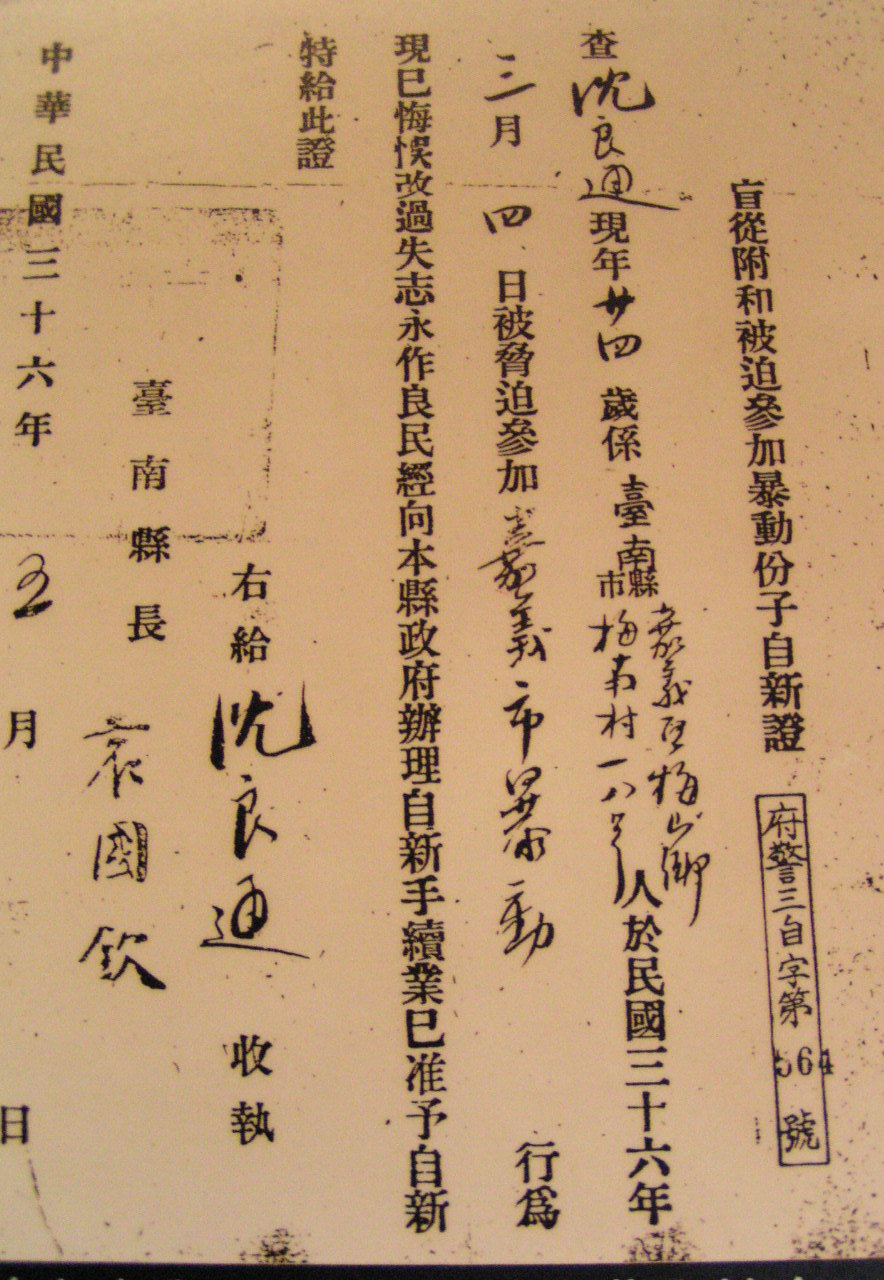 盲從附和被迫參加暴動份子自新證
府警三自字第564號
查沈良通現年廿四歲係臺南縣市嘉義區梅山鄉梅南村一八號人於民國三十六年
三月四日被脅迫參加嘉義市暴動行為
現已悔悞改過失志永作良民經向本縣政府辦理自新手續業已准予自新
特給此證
右給沈良通收執
臺南縣長袁國欽
中華民國三十六年五月日